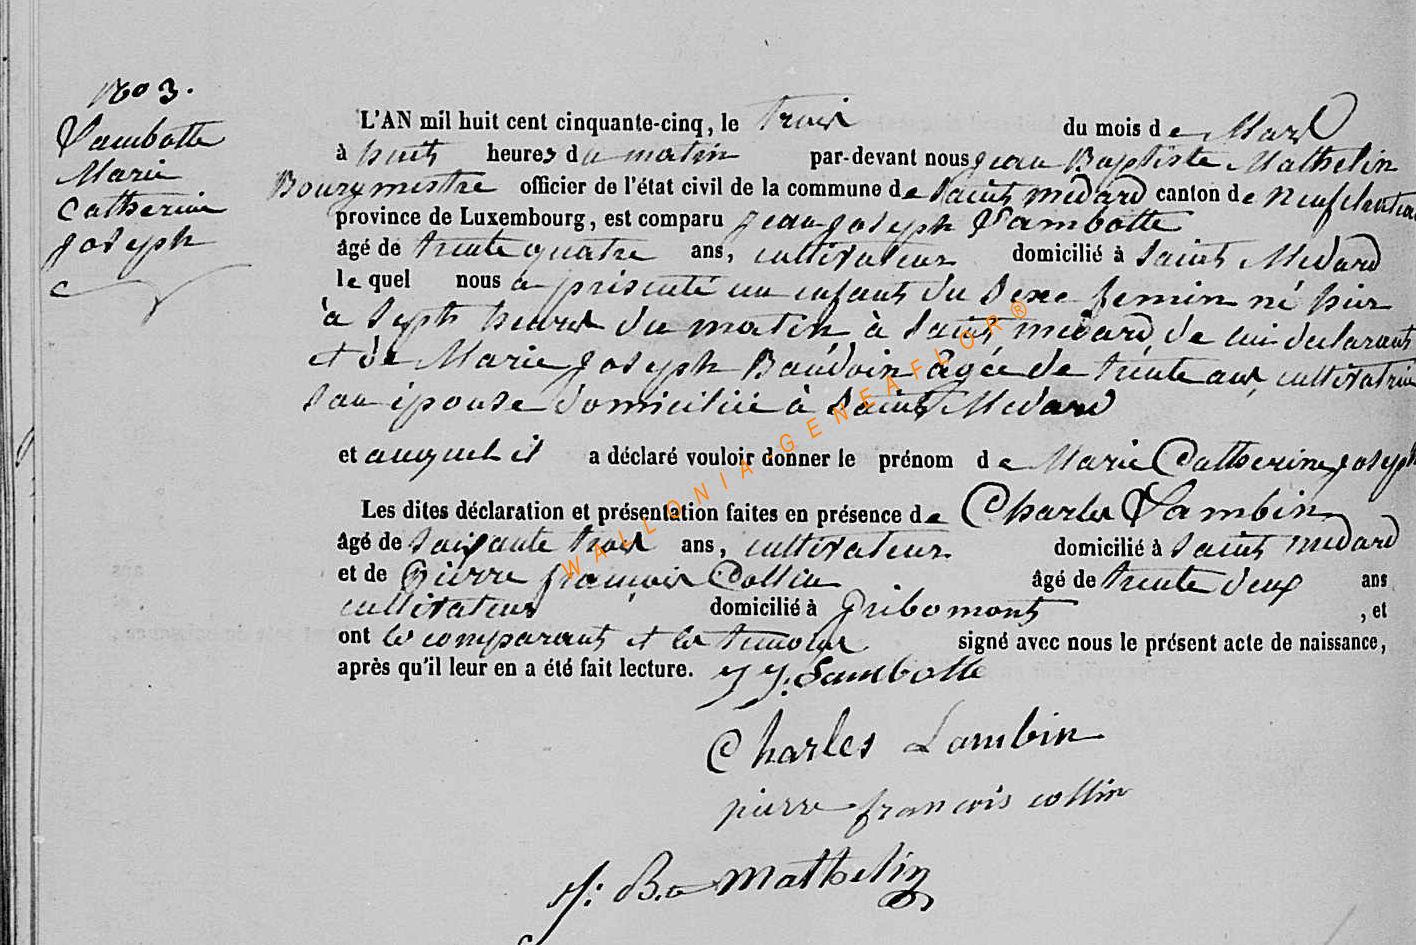 1803.
Lambotte
Marie
Catherine
Joseph
L'AN mil huit cent cinquante-cinq, le trois du mois de Mars
à huit heures du matin par-devant nous Jean Baptiste Mathelin
Bourgmestre officier de l'état civil de la commune de Saint Médard canton de Neufchateau
province de Luxembourg, est comparu Jean Joseph Lambotte
âgé de trente quatre ans, cultivateur domicilié à Saint Médard
le quel nous a présenté un enfant du sexe femin né hier
à Sept heures du matin à Saint médard, de lui déclarant
et de Marie Joseph Baudoin agée de trente ans, cultivatrice
son épouse domiciliée à Saint Médard
et auquel il a déclaré vouloir donner le prénom de Marie Catherine Joseph
Les dites déclaration et présentation faites en présence de Charles Lambin
âgé de soixante trois ans, cultivateur domicilié à Saint médard
et de Pierre françois Collin âgé de trente deux ans
cultivateur domicilié à Gribomont , et
ont le comparant et les temoins signé avec nous le présent acte de naissance,
après qu'il leur en a été fait lecture. J J. Lambotte
Charles Lambin
pierre françois collin
J: B. Mathelin
WALLONIA GENEAFLOR®